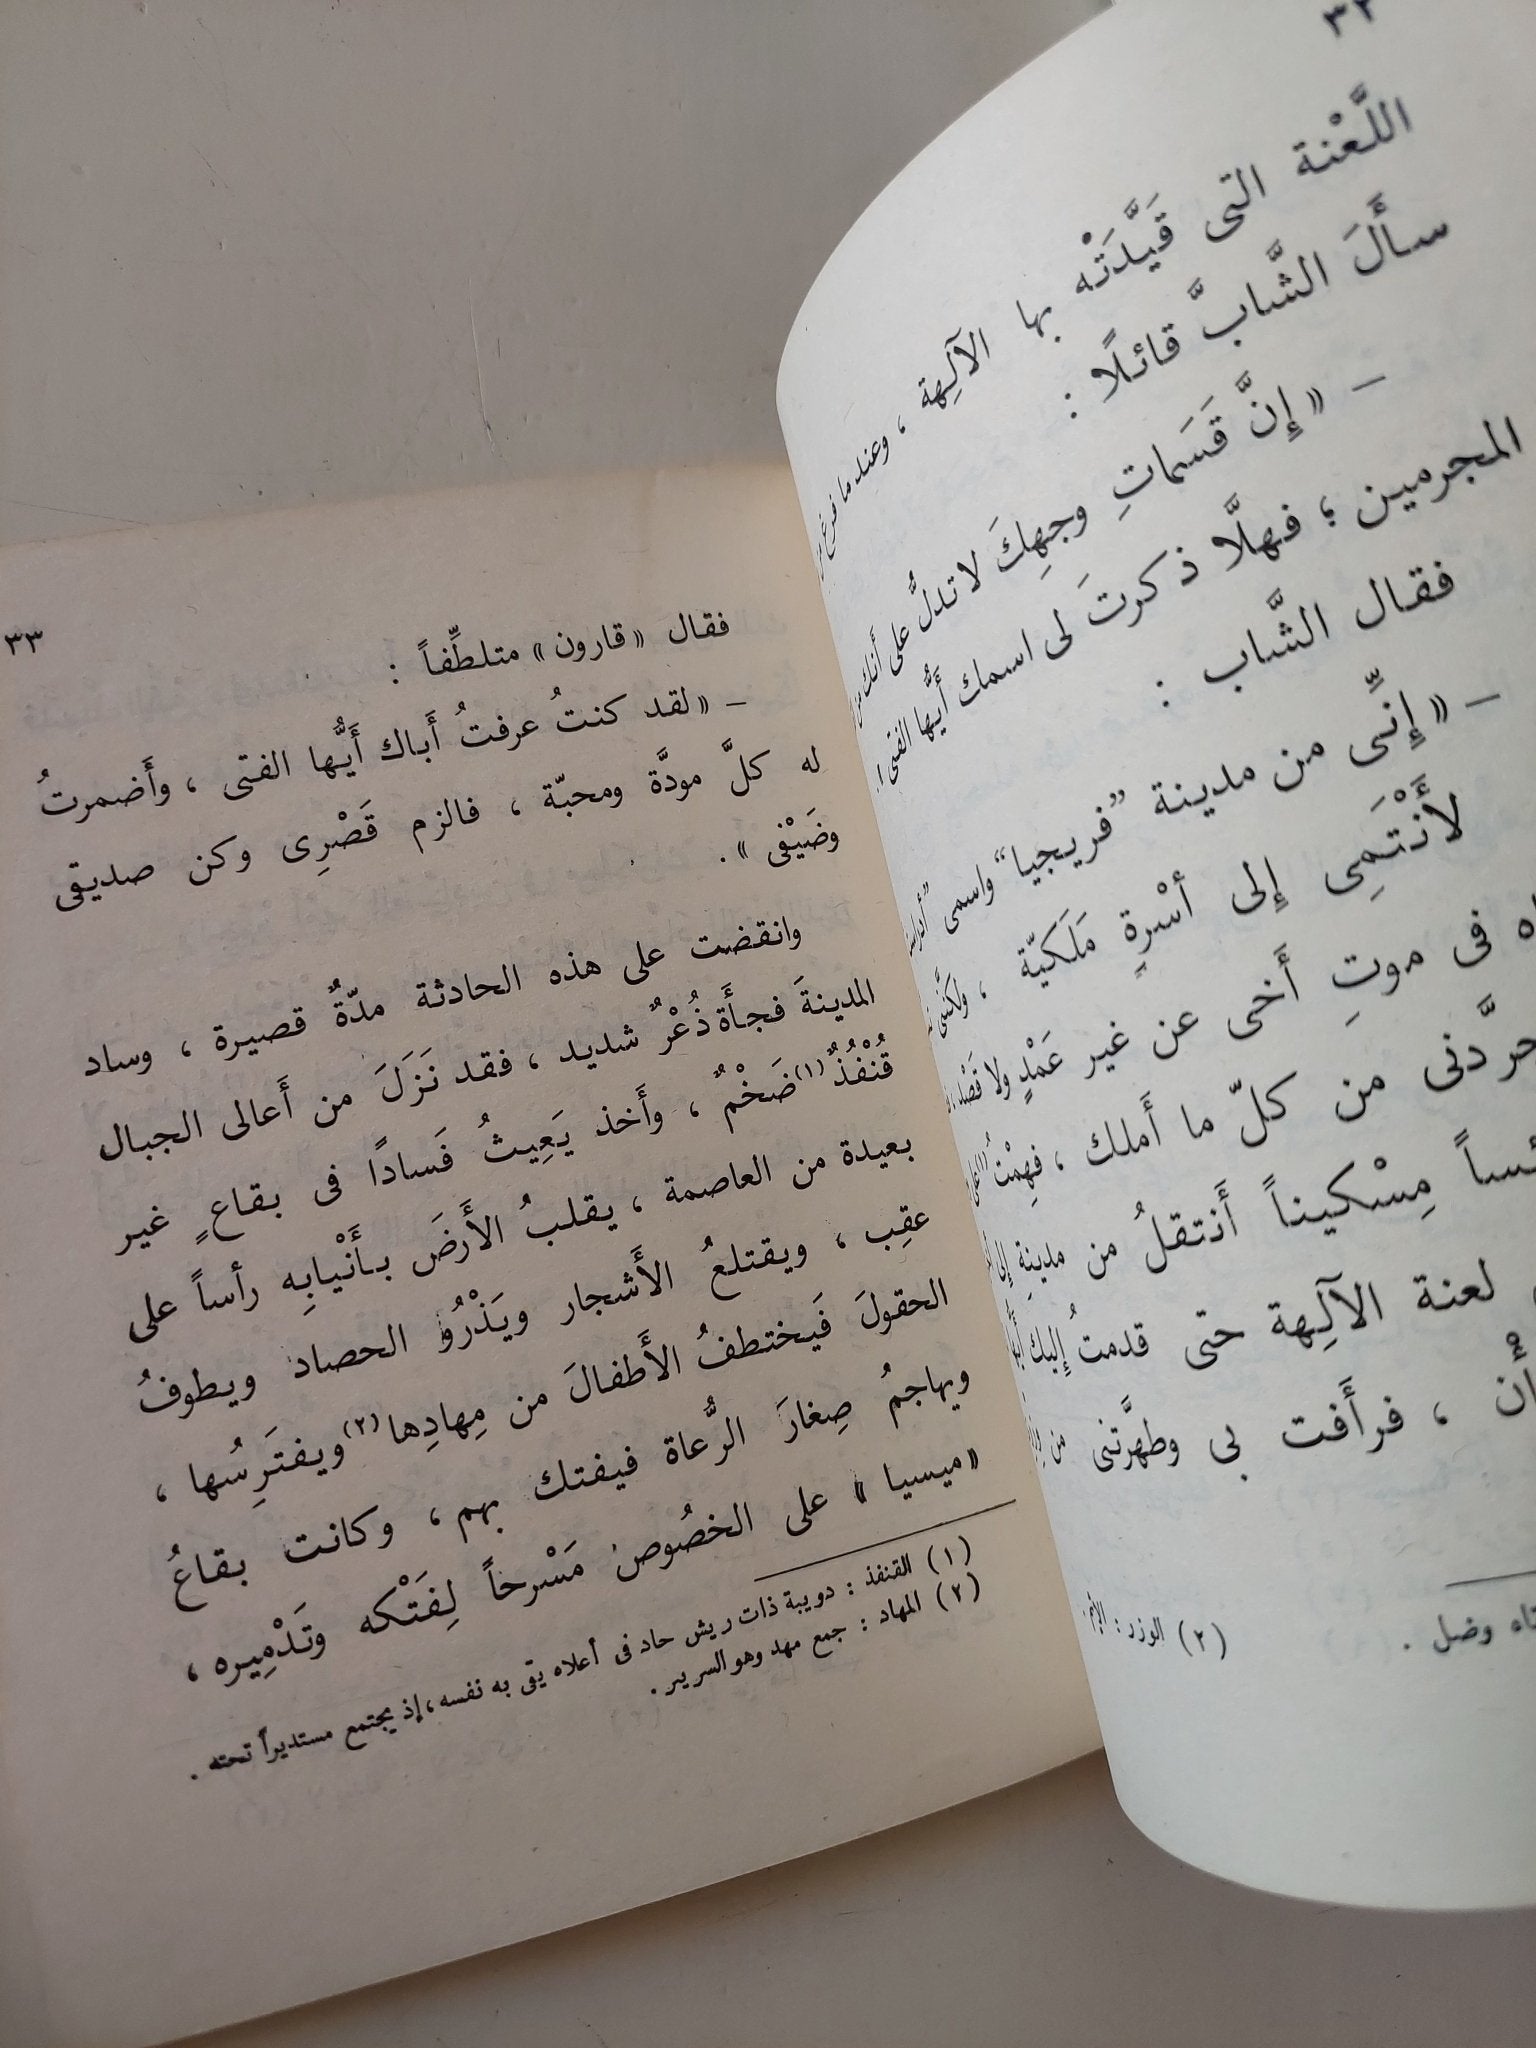 ٣٢
اللَّعْنة التى قَيَّدَتْه بها الآلِهة ، وعندما فرغ من
سألَ الشَّابَّ قائلًا :
– « إِنَّ قَسَماتِ وجهِكَ لا تدلُّ على أَنك من
المجرمين ؛ فهلَّا ذكرتَ لى اسمك أَيُّها الفتى !
فقال الشَّاب :
– « إِنِّى من مدينة ”فريجيا“ واسمى
لأَنْتَمِى إِلى أسْرةٍ مَلَكيّة ، ولكنَّنى
فى موتِ أَخى عن غير عَمْدٍ ولا قَصْد
من كلّ ما أَملك ، فهِمْتُ (١) على
مِسْكيناً أَنتقلُ من مدينةٍ إِلى
لعنة الآلِهة حتى قدمتُ إِليك أَيها
، فرأَفت بى وطهرَّتنى من
وضل .
(٢) الوزر : الإثم .
٣٣
فقال « قارون » متلطِّفاً :
– « لقد كنتُ عرفتُ أَباك أَيُّها الفتى ، وأَضمرتُ
له كلَّ مودَّة ومحبّة ، فالزم قَصْرِى وكن صديقى
وضَيْفى » .
وانقضت على هذه الحادثة مدّةٌ قصيرة ، وساد
المدينةَ فجأَة ذُعْرٌ شديد ، فقد نَزَلَ من أَعالى الجبال
قُنْفُذٌ (١) ضَخْمٌ ، وأَخذ يَعِيثُ فَسادًا فى بقاعٍ غير
بعيدة من العاصمة ، يقلبُ الأَرضَ بأَنْيابِه رأساً على
عقِب ، ويقتلعُ الأَشجار ويَذْرُو الحصاد ويطوفُ
الحقولَ فَيختطفُ الأَطفالَ من مِهادِها (٢) ويفترِسُها ،
ويهاجمُ صِغارَ الرُّعاة فيفتك بهم ، وكانت بقاعُ
« ميسيا » على الخصُوص مَسْرحاً لِفَتْكه وتَدْمِيره ،
(١) القنفذ : دويبة ذات ريش حاد فى أعلاه يقى به نفسه ، إذ يجتمع مستديراً تحته .
(٢) المهاد : جمع مهد وهو السرير .